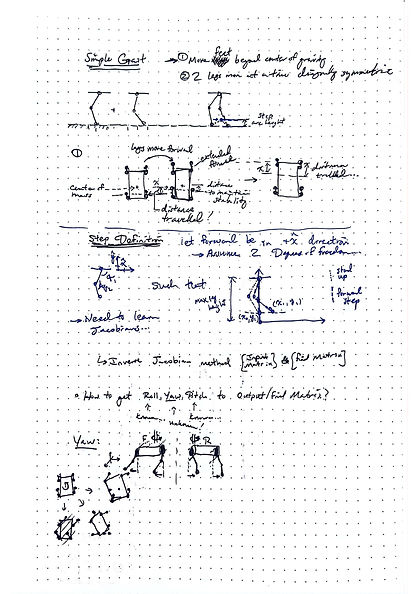 Simple Gait → ① Move feet beyond center of gravity
② 2 legs move at a time diagonally symmetric
+
step
arc height
①
legs move forward
extended
forward
center of
mass
x
distance
to maintain
stability
distance
travelled!
→
x
distance
travelled...
Step Definition
let forward be in +x̂ direction
→ Assume 2 Degrees of freedom...
such that
max leg
height
(x₁, y₁)
stand
up
forward
step
→ Need to learn
Jacobians...
↳ Inverse Jacobian method [Input Matrix] & [final Matrix]
• How to get Roll, Yaw, Pitch to Output/final Matrix?
known...
Unknown!
known...
Yaw:
F
R